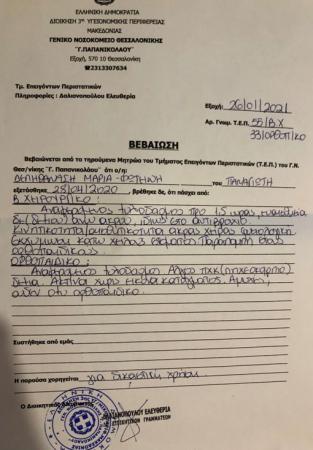 ΕΛΛΗΝΙΚΗ ΔΗΜΟΚΡΑΤΙΑ
ΔΙΟΙΚΗΣΗ 3ης ΥΓΕΙΟΝΟΜΙΚΗΣ ΠΕΡΙΦΕΡΕΙΑΣ
ΜΑΚΕΔΟΝΙΑΣ
ΓΕΝΙΚΟ ΝΟΣΟΚΟΜΕΙΟ ΘΕΣΣΑΛΟΝΙΚΗΣ
"Γ.ΠΑΠΑΝΙΚΟΛΑΟΥ"
Εξοχή, 570 10 Θεσσαλονίκη
☎2313307634
Τμ. Επειγόντων Περιστατικών
Πληροφορίες : Δαλιανοπούλου Ελευθερία
Εξοχή: 26/01/2021
Αρ. Γνωμ. Τ.Ε.Π. 55/Β.Χ
33/ΟΡΘΟΠ/ΚΟ
ΒΕΒΑΙΩΣΗ
Βεβαιώνεται από το τηρούμενο Μητρώο του Τμήματος Επειγόντων Περιστατικών (Τ.Ε.Π.) του Γ.Ν.
Θεσ/νίκης "Γ. Παπανικολάου" ότι ο/η:
ΔΕΛΗΘΑΝΑΣΗ ΜΑΡΙΑ-ΦΩΤΕΙΝΗ του ΠΑΝΑΓΙΩΤΗ
εξετάσθηκε 28/04/2020, βρέθηκε δε, ότι πάσχει από:
Β ΧΕΙΡΟΥΡΓΙΚΟ:
Αναφερόμενος ξυλοδαρμός προ 1,5 ώρας,
δε(ξιού) άνω άκρου, ιδίως στο αντιβράχιο.
Κινητικότητα/αισθητικότητα άκρας χείρας φυσιολογική
Εκχύμωση κάτω χείλους Παραπομπή στους
ορθοπαιδικούς.
ΟΡΘΟΠΑΙΔΙΚΟ:
Αναφερόμενος ξυλοδαρμός. Άλγος ΠΧΚ (πηχεοκαρπική)
δεξιά. Ακτίνα χωρίς εικόνα κατάγματος.
ορθοπαιδικό.
Συστήθηκε από εμάς
Η παρούσα χορηγείται για δικαστική χρήση.
Ο Διοικητικός
ΔΑΛΙΑΝΟΠΟΥΛΟΥ ΕΛΕΥΘΕΡΙΑ
ΔΙΟΙΚΗΤΙΚΩΝ ΓΡΑΜΜΑΤΕΩΝ